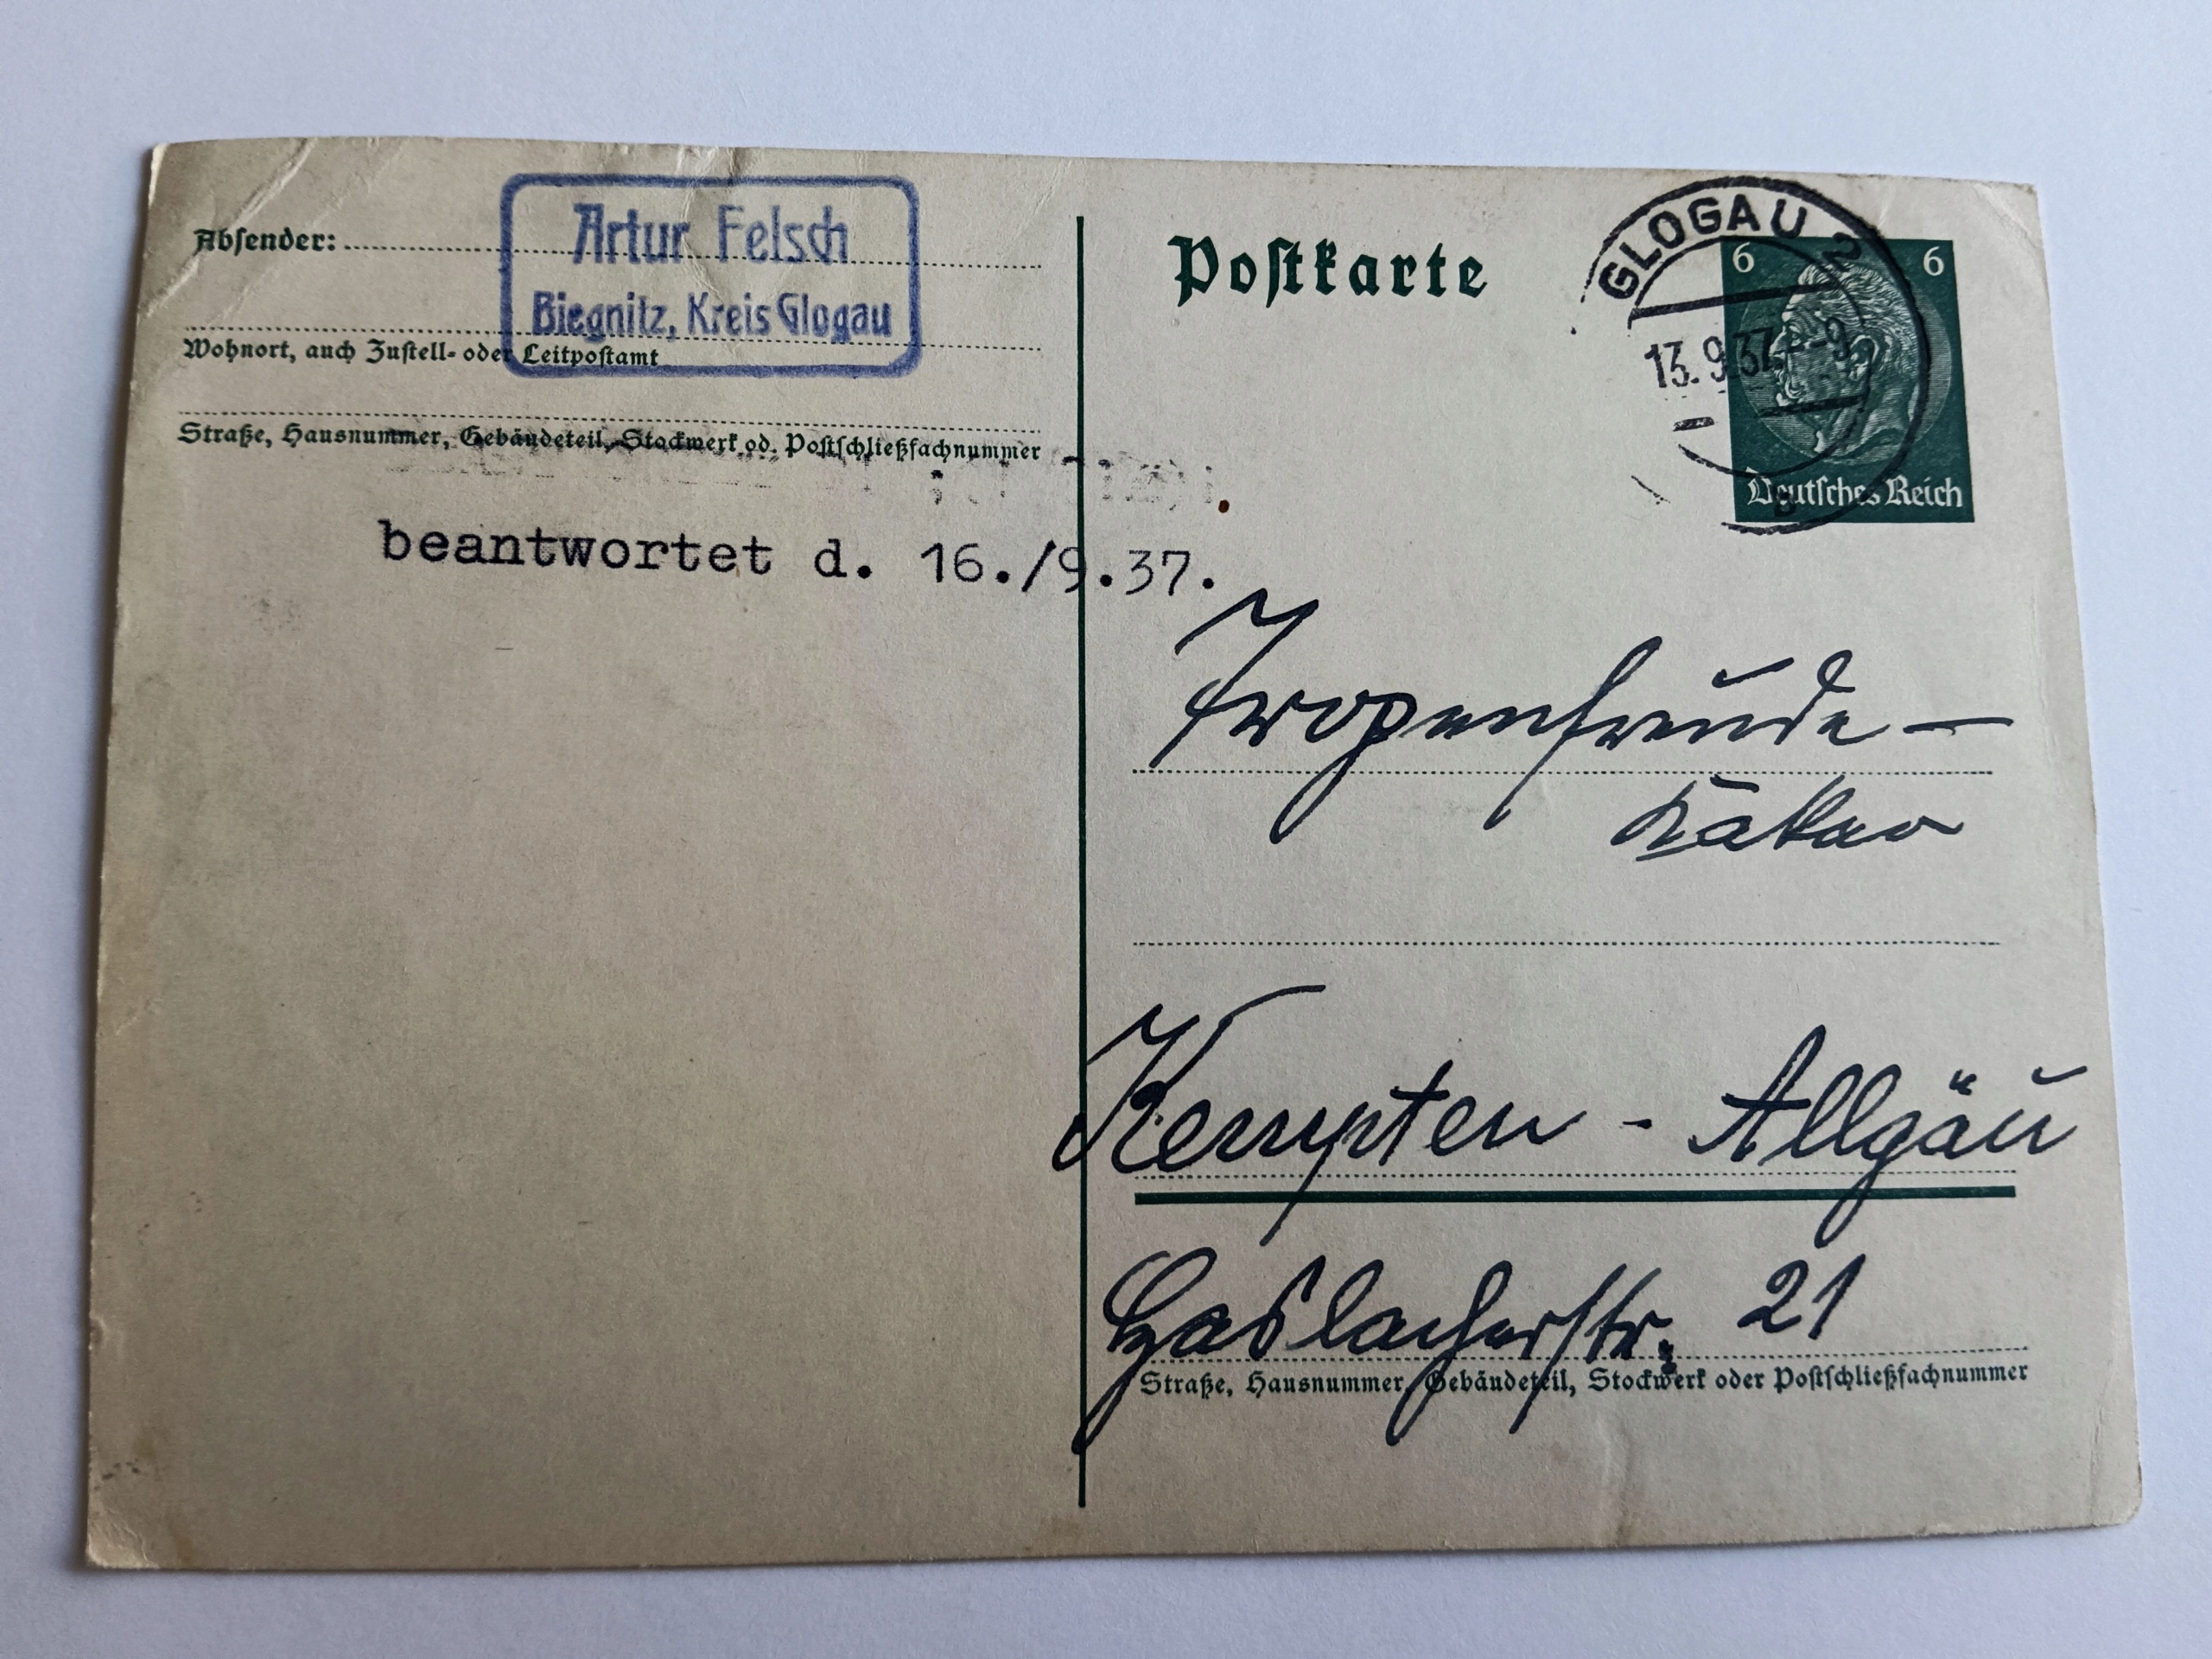 Absender:
Artur Felsch
Biegnitz, Kreis Glogau
Wohnort, auch Zustell- oder Leitpostamt
Straße, Hausnummer, Gebäudeteil, Stockwerk od. Postschließfachnummer
beantwortet d. 16./9.37.
Postkarte
GLOGAU 2
13.9.37.-9
6 6
Deutsches Reich
Tropenfreude-
Kakao
Kempten - Allgäu
Haslacherstr. 21
Straße, Hausnummer, Gebäudeteil, Stockwerk oder Postschließfachnummer